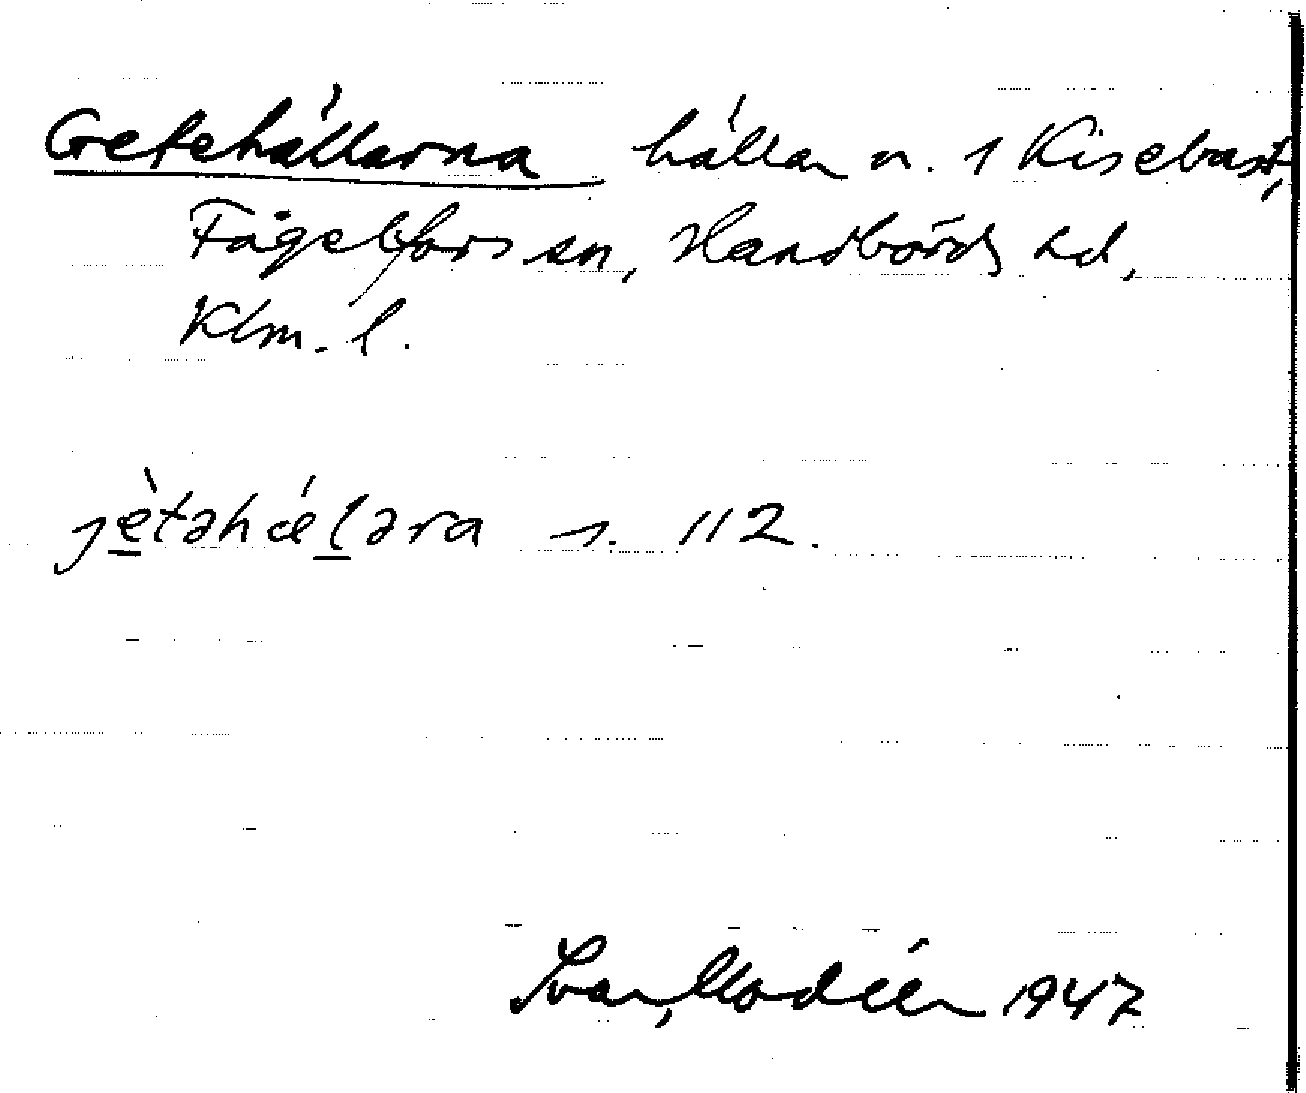 Getehällarna hällar n. i Kisebast,
Fågelfors sn, Handbörds hd,
Klm. l.
jètəhǽḷəra s. 112.
Ivar Modéer 1947